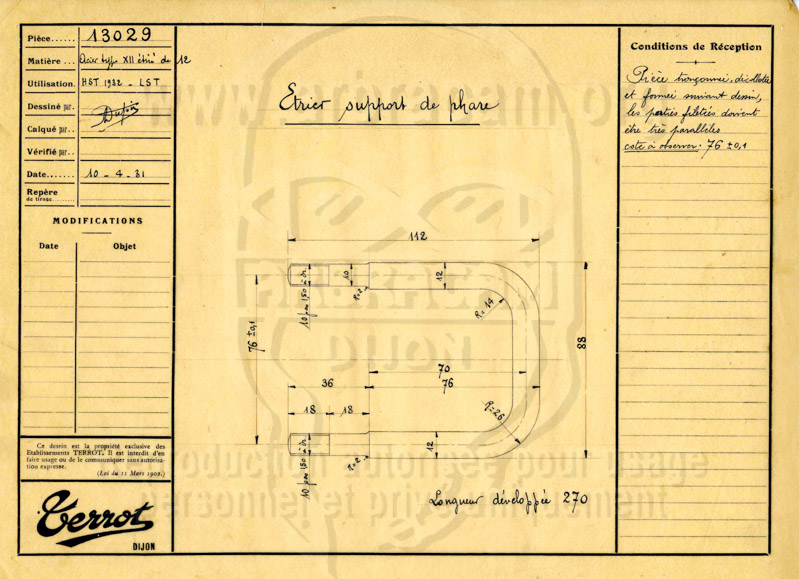 Pièce...... 13029
Matière... Acier type XII étiré de 12
Utilisation. HST 1932 - LST
Dessiné par.
Calqué par..
Vérifié par..
Date....... 10 - 4 - 31
Repère
de tirage
MODIFICATIONS
Date Objet
Ce dessin est la propriété exclusive des
Etablissements TERROT. Il est interdit d'en
faire usage ou de le communiquer sans autorisa-
tion expresse.
(Loi du 11 Mars 1902.)
Terrot
DIJON
Etrier support de phare
112
10
12
10 pas 150 à dr.
R=2
R=14
76 ±0,1
88
70
36
76
18
18
R=26
12
10 pas 150 à dr.
R=2
Longueur développée 270
Conditions de Réception
Pièce tronçonnée, décolletée
et formée suivant dessin,
les parties filetées doivent
être très parallèles
cote à observer: 76 ±0,1
DIJON
reproduction autorisée pour usage
personnel et privé uniquement